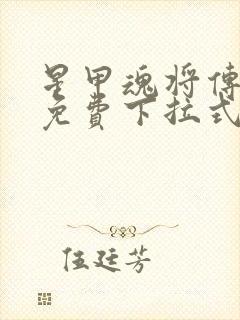 星甲魂将傳
免費下拉式
伍廷芳